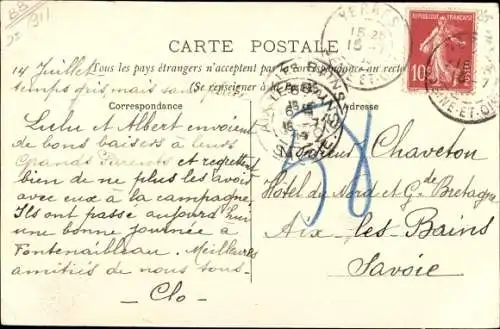 CARTE POSTALE
Tous les pays étrangers n'acceptent pas la correspondance au recto
(Se renseigner à la Poste)
Correspondance
Adresse
14 Juillet
temps gris mais sans pluie
Lulu et Albert envoient
de bons baisers à leurs
Grands Parents et regrettent
bien de ne plus les avoir
avec eux à la campagne
Ils ont passé aujourd'hui
une bonne journée à
Fontenaibleau. Meilleures
amitiés de nous tous.
Clo
Monsieur Chaveton
Hôtel du Nord et Gde Bretagne
Aix les Bains
Savoie
58
REPUBLIQUE FRANÇAISE
10c
POSTES